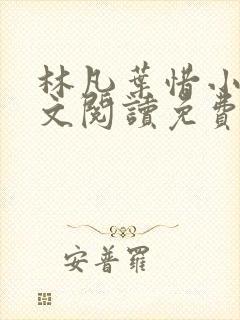 林凡葉惜小
文閱讀免費
安普羅